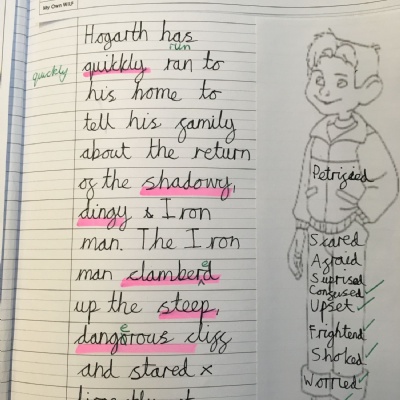 My Own WILF
Hogarth has
run
quickly
quikkly ran to
his home to
tell his family
about the return
of the shadowy,
dingy & Iron
man. The Iron
e
man clamberd
up the steep,
e
dangorous cliff
and stared x
Petrified
Scared
Afraid
Suprised
Confused
Upset
Frightend
Shoked
Worried